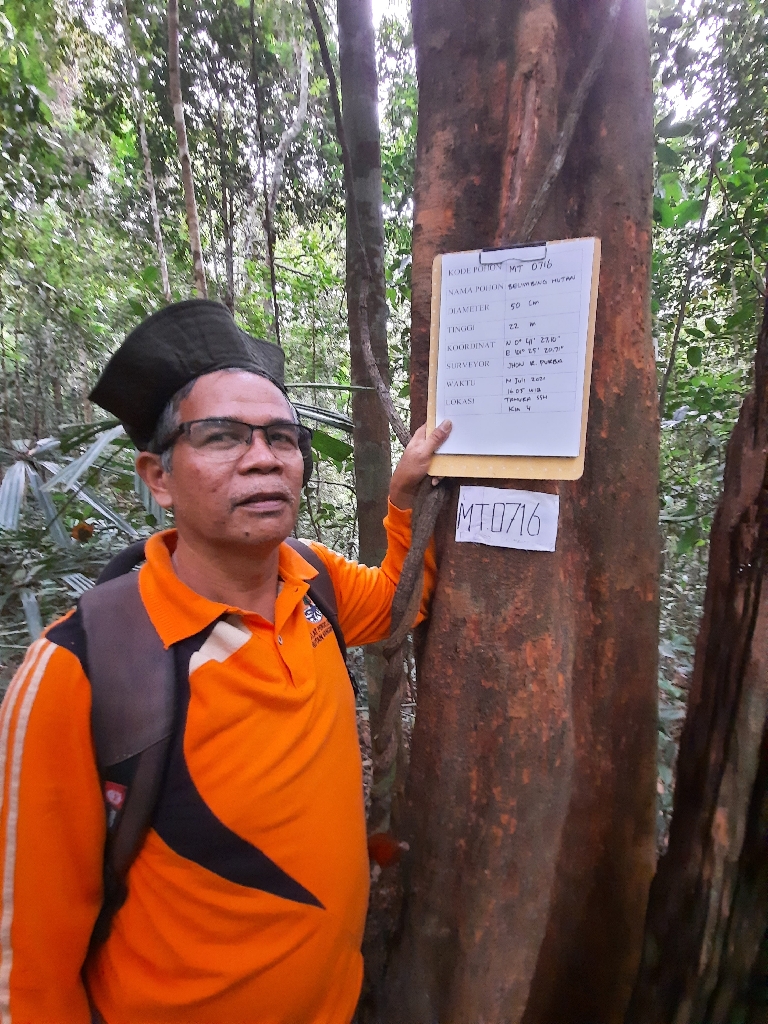 KODE POHON MT 0716
NAMA POHON BELIMBING HUTAN
DIAMETER 50 CM
TINGGI 22 M
KOORDINAT N 0° 41' 27.10"
E 101° 25' 20.71"
SURVEYOR JHON R. PURBA
WAKTU Juli 2021
16.05 WIB
LOKASI TAHURA SSH
KM 4
MT0716